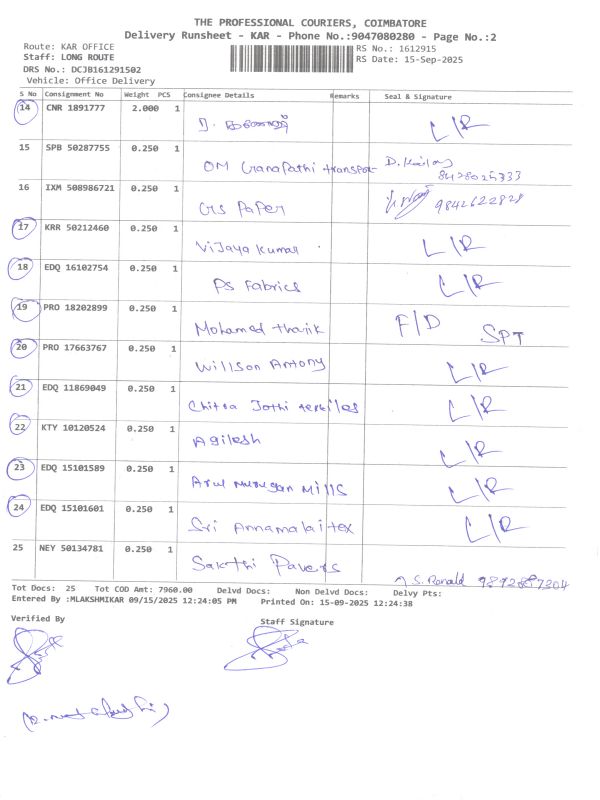 THE PROFESSIONAL COURIERS, COIMBATORE
Delivery Runsheet - KAR - Phone No.:9047080280 - Page No.:2
Route: KAR OFFICE RS No.: 1612915
Staff: LONG ROUTE RS Date: 15-Sep-2025
DRS No.: DCJB161291502
Vehicle: Office Delivery
S No Consignment No Weight PCS Consignee Details Remarks Seal & Signature
14 CNR 1891777 2.000 1 L/R
15 SPB 50287755 0.250 1 OM Ganapathi transport
16 IXM 508986721 0.250 1 Grs Paper 9842622828
17 KRR 50212460 0.250 1 Vijaya Kumar L/R
18 EDQ 16102754 0.250 1 Ps Fabrics L/R
19 PRO 18202899 0.250 1 Mohamed F/D SPT
20 PRO 17663767 0.250 1 Willson Antony L/R
21 EDQ 11869049 0.250 1 Chitra Jothi L/R
22 KTY 10120524 0.250 1 Agilesh L/R
23 EDQ 15101589 0.250 1 Arul Murugan Mills L/R
24 EDQ 15101601 0.250 1 Sri Annamalai tex L/R
25 NEY 50134781 0.250 1 Sakthi Pavers S. Ronald
Tot Docs: 25 Tot COD Amt: 7960.00 Delvd Docs: Non Delvd Docs: Delvy Pts:
Entered By :MLAKSHMIKAR 09/15/2025 12:24:05 PM Printed On: 15-09-2025 12:24:38
Verified By Staff Signature